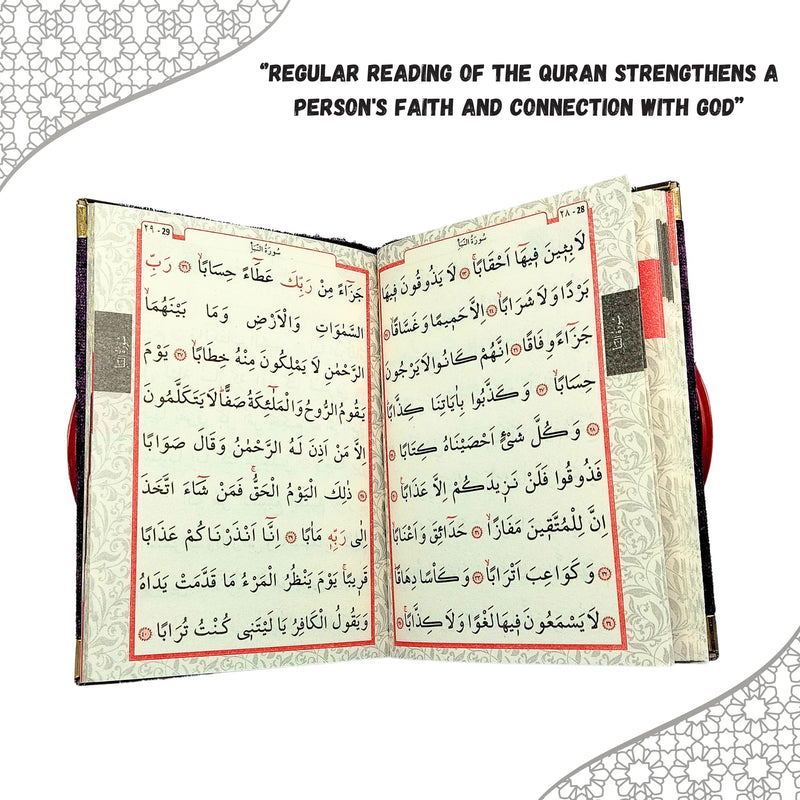 ‘’REGULAR READING OF THE QURAN STRENGTHENS A
PERSON'S FAITH AND CONNECTION WITH GOD”
٢٨ - 28
سُورَةُ النَّبَأِ
لَابِث۪ينَ ف۪يهَٓا اَحْقَابًاۚ ٢٣ لَا يَذُوقُونَ ف۪يهَا
بَرْدًا وَلَا شَرَابًاۙ ٢٤ اِلَّا حَم۪يمًا وَغَسَّاقًاۙ ٢٥
جَزَٓاءً وِفَاقًاۜ ٢٦ اِنَّهُمْ كَانُوا لَا يَرْجُونَ
حِسَابًاۙ ٢٧ وَكَذَّبُوا بِاٰيَاتِنَا كِذَّابًاۜ
٢٨ وَكُلَّ شَيْءٍ اَحْصَيْنَاهُ كِتَابًاۙ ٢٩
فَذُوقُوا فَلَنْ نَز۪يدَكُمْ اِلَّا عَذَابًا۟ ٣٠
اِنَّ لِلْمُتَّق۪ينَ مَفَازًاۙ ٣١ حَدَٓائِقَ وَاَعْنَابًاۙ ٣٢
وَكَوَاعِبَ اَتْرَابًاۙ ٣٣ وَكَأْسًا دِهَاقًاۜ ٣٤
لَا يَسْمَعُونَ ف۪يهَا لَغْوًا وَلَا كِذَّابًاۚ ٣٥
٢٩ - 29
سُورَةُ النَّبَأِ
جَزَٓاءً مِنْ رَبِّكَ عَطَٓاءً حِسَابًاۙ ٣٦ رَبِّ
السَّمٰوَاتِ وَالْاَرْضِ وَمَا بَيْنَهُمَا
الرَّحْمٰنِ لَا يَمْلِكُونَ مِنْهُ خِطَابًاۚ ٣٧ يَوْمَ
يَقُومُ الرُّوحُ وَالْمَلٰٓئِكَةُ صَفًّاۜ لَا يَتَكَلَّمُونَ
اِلَّا مَنْ اَذِنَ لَهُ الرَّحْمٰنُ وَقَالَ صَوَابًا
٣٨ ذٰلِكَ الْيَوْمُ الْحَقُّۚ فَمَنْ شَٓاءَ اتَّخَذَ
اِلٰى رَبِّه۪ مَاٰبًا ٣٩ اِنَّٓا اَنْذَرْنَاكُمْ عَذَابًا
قَر۪يبًاۚ يَوْمَ يَنْظُرُ الْمَرْءُ مَا قَدَّمَتْ يَدَاهُ
وَيَقُولُ الْكَافِرُ يَا لَيْتَن۪ي كُنْتُ تُرَابًا ٤٠